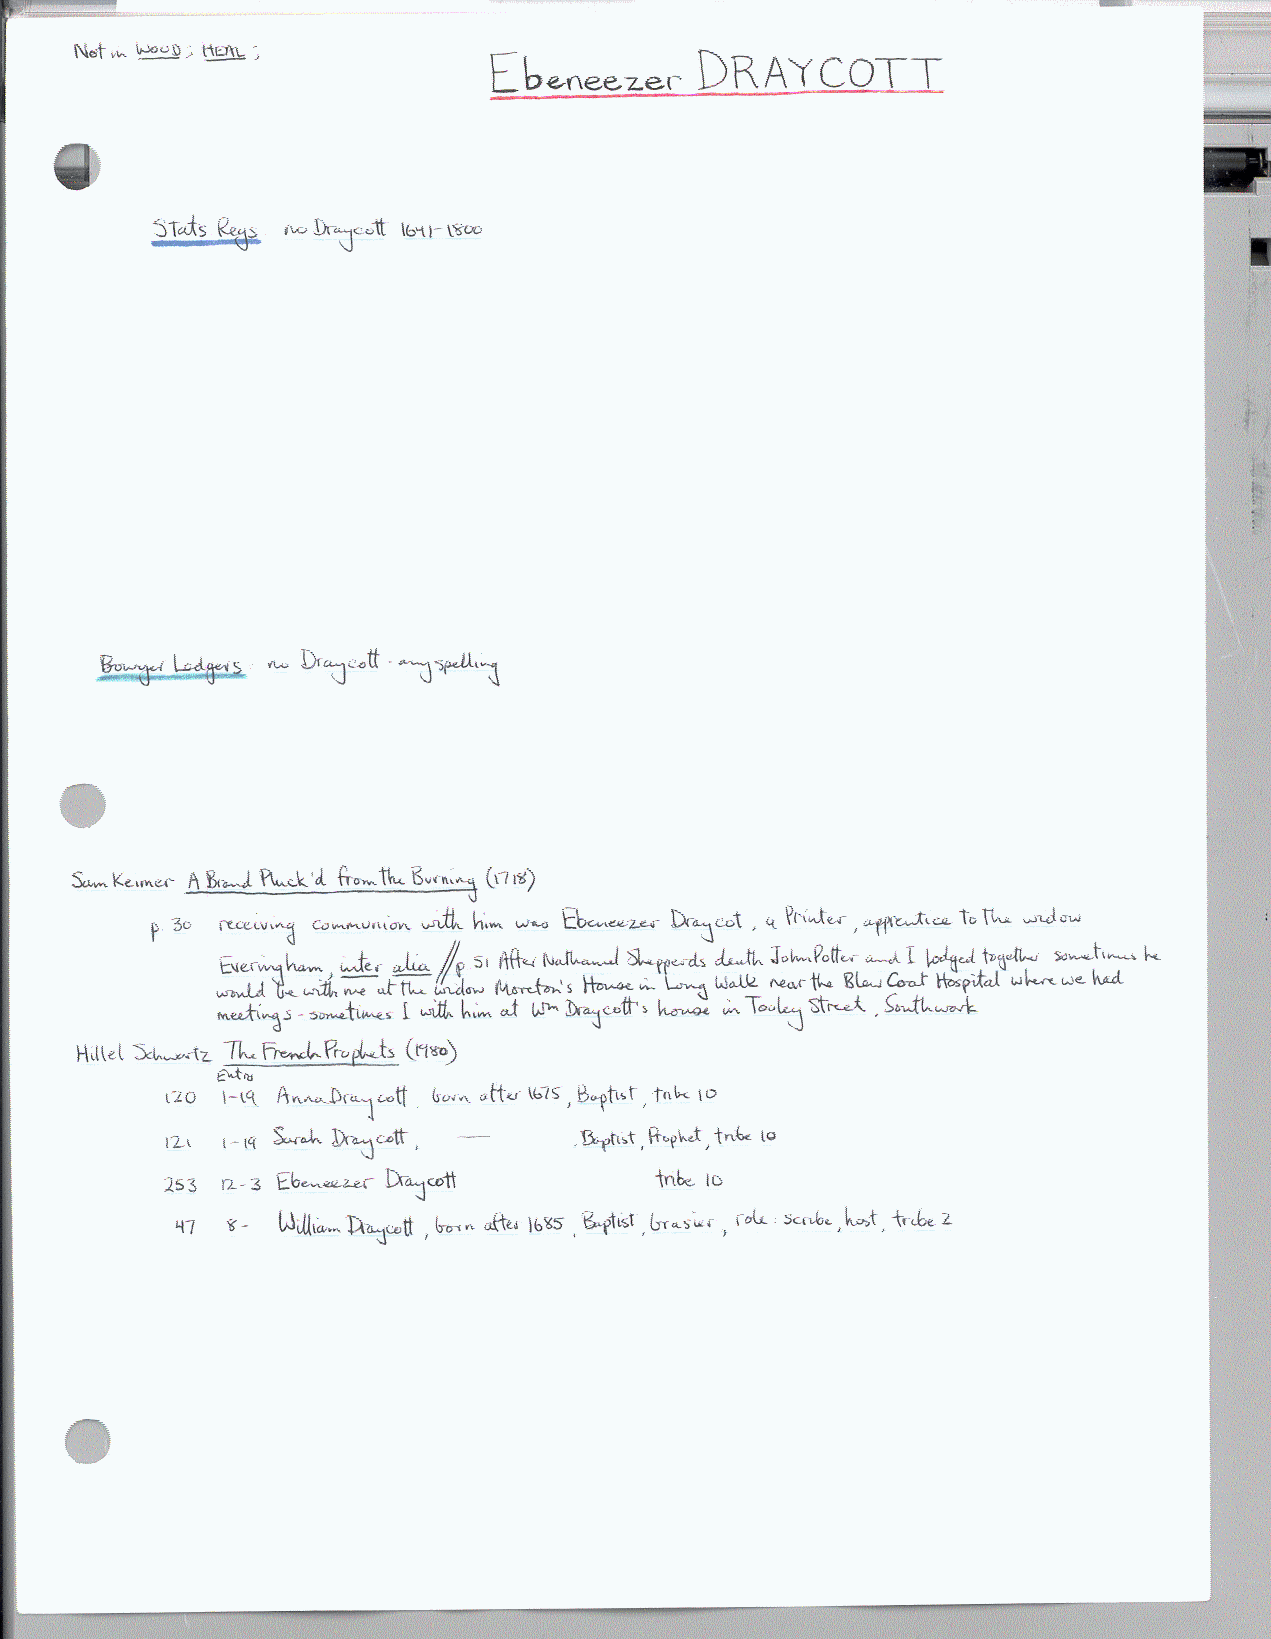 Not in WOOD; HEAL;
Ebeneezer DRAYCOTT
Stats Regs no Draycott 1641-1800
Bowyer Ledgers no Draycott - any spelling
Sam Keimer A Brand Pluck'd from the Burning (1718)
p. 30 receiving communion with him was Ebeneezer Draycot, a Printer, apprentice to The widow
Everingham, inter alia // p 51 After Nathanael Shepperds death John Potter and I lodged together sometimes he
would be with me at the widow Moreton's House in Long Walk near the Blew Coat Hospital where we had
meetings - sometimes I with him at Wm Draycott's house in Tooley Street, Southwark
Hillel Schwartz The French Prophets (1980)
Entry
120 1-19 Anna Draycott, born after 1675, Baptist, tribe 10
121 1-19 Sarah Draycott, — , Baptist, Prophet, tribe 10
253 12-3 Ebeneezer Draycott tribe 10
47 8- William Draycott, born after 1685, Baptist, brasier, role: scribe, host, tribe 2